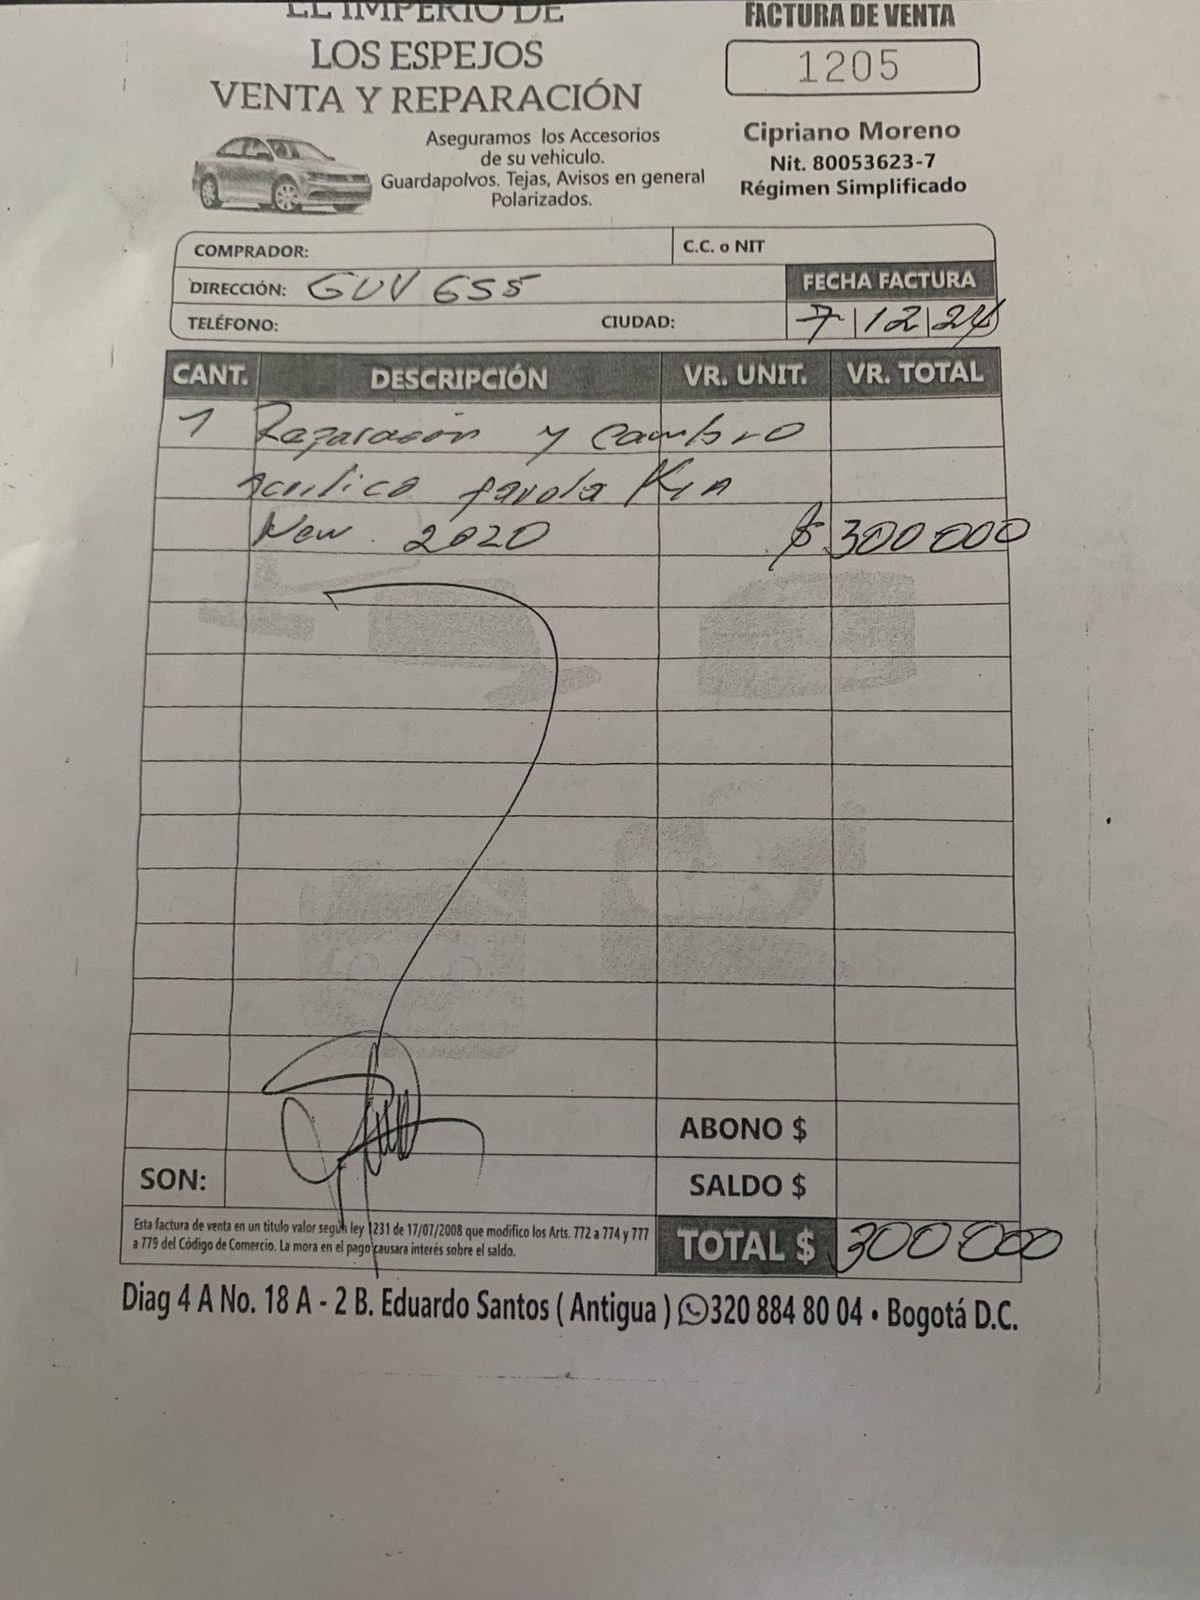 EL IMPERIO DE
LOS ESPEJOS
VENTA Y REPARACIÓN
Aseguramos los Accesorios
de su vehiculo.
Guardapolvos. Tejas, Avisos en general
Polarizados.
FACTURA DE VENTA
1205
Cipriano Moreno
Nit. 80053623-7
Régimen Simplificado
COMPRADOR:
C.C. o NIT
DIRECCIÓN: GUV 655
FECHA FACTURA
TELÉFONO: CIUDAD: 7 | 12 | 24
CANT. DESCRIPCIÓN VR. UNIT. VR. TOTAL
1 Reparasión y cambio
acrilico farola KIA
New 2020 $ 300 000
ABONO $
SON: SALDO $
Esta factura de venta en un titulo valor según ley 1231 de 17/07/2008 que modifico los Arts. 772 a 774 y 777
a 779 del Código de Comercio. La mora en el pago causara interés sobre el saldo.
TOTAL $ 300 000
Diag 4 A No. 18 A - 2 B. Eduardo Santos ( Antigua ) 320 884 80 04 • Bogotá D.C.